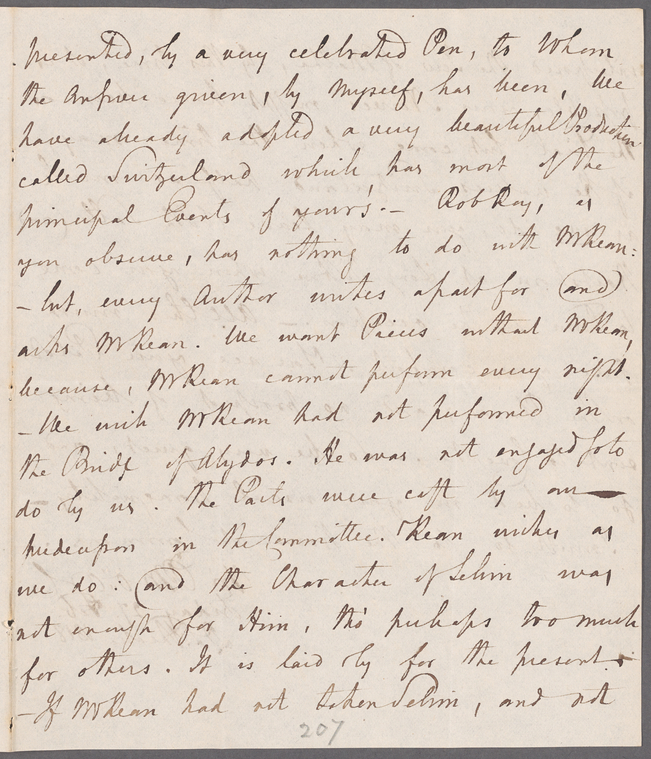 presented, by a very celebrated Pen, to whom
the Answer given, by Myself, has been, We
have already adopted a very beautiful Production
called Switzerland which has most of the
principal Events of yours. — Rob Roy, as
you observe, has nothing to do with Mr Kean:
— but, every Author writes a part for (and)
asks Mr Kean. We want Pieces without Mr Kean,
because, Mr Kean cannot perform every night.
— We wish Mr Kean had not performed in
the Bride of Abydos. He was not engaged so to
do by us. The Parts were cast by our
predecessors in the Committee. Kean wishes as
we do: (and the Character of Selim was
not enough for Him, tho' perhaps too much
for others. It is laid by for the present.
— If Mr Kean had not taken Selim, and not
207